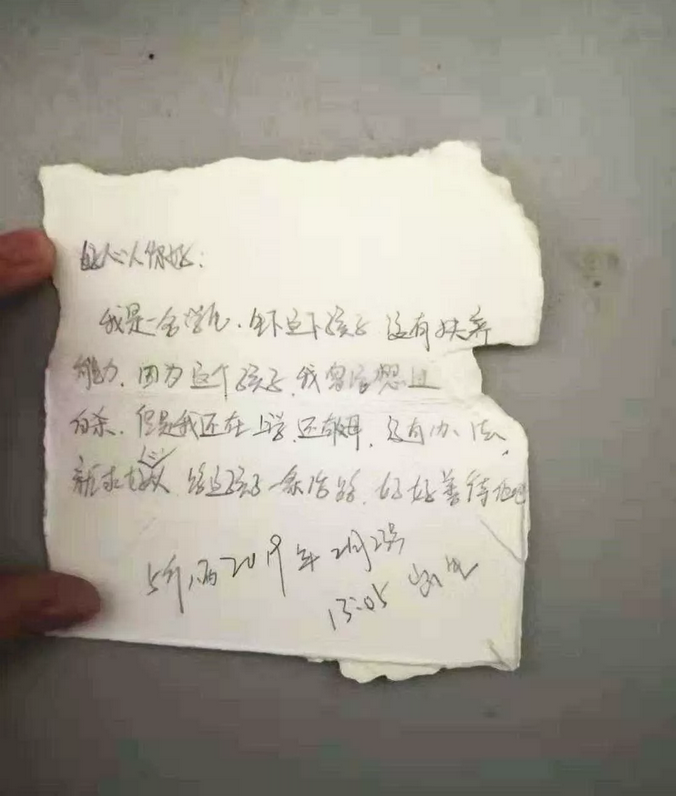 好心人你好:
我是一名学生.生下这个孩子 没有扶养
能力.因为这个孩子.我曾经想过
自杀.但是我还在上学.还有父母.没有办法,
祈求好心人 给这孩子一条活路.好好善待他吧
5斤1两2019年2月2号
13:05 出生